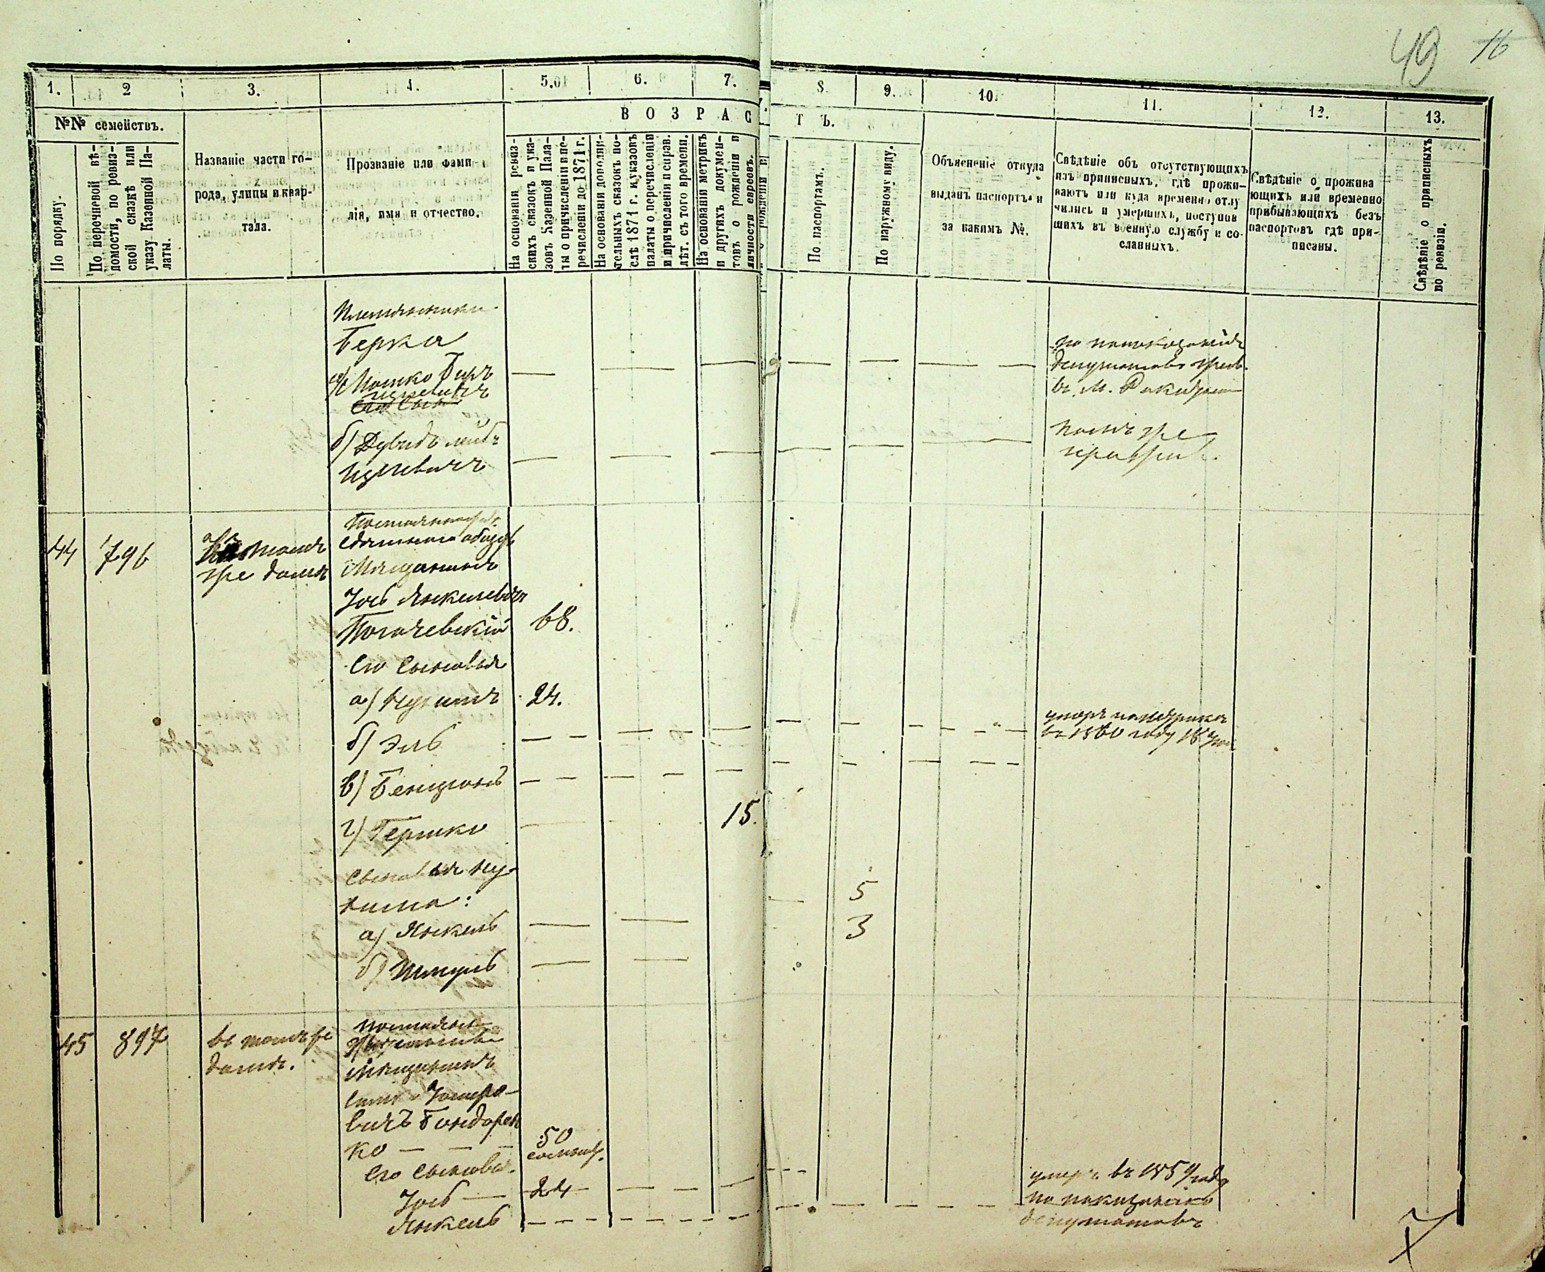 49 16
1. 2 3. 4. 5. 6. 7. 8. 9. 10 11. 12. 13.
№№ семействъ.
ВОЗРАСТЪ.
По порядку.
По перечневой вѣ-
домости, по ревиз-
ской сказкѣ или
указу Казенной Па-
латы.
Названіе части го-
рода, улицы и квар-
тала.
Прозваніе или фами-
лія, имя и отчество.
На основаніи ревиз-
скихъ сказокъ и ука-
зовъ Казенной Пала-
ты о причисленіи и пе-
речисленіи до 1871 г.
На основаніи дополни-
тельныхъ сказокъ по-
слѣ 1871 г. и указовъ
палаты о перечисленіи
и причисленіи и справ.
лѣт. съ того времени.
На основаніи метрикъ
и другихъ докумен-
товъ о рожденіи и
личности евреевъ.
По паспортамъ.
По наружному виду.
Объясненіе откуда
выданъ паспортъ и
за какимъ №.
Свѣдѣніе объ отсутствующихъ
изъ приписныхъ, гдѣ прожи-
ваютъ или куда временно отлу
чились и умершихъ, поступив
шихъ въ военную службу и со-
сланныхъ.
Свѣдѣніе о прожива
ющихъ или временно
прибывающихъ безъ
паспортовъ гдѣ при-
писаны.
Свѣдѣніе о приписныхъ
по ревизіи.
Племянники
Берка
а) Іошко Беръ
Ицкевичъ
его сынъ
по показанію
депутатовъ
въ М.
б) Дувидъ Лейбъ
Ицкевичъ
тамъ же
44 796
въ томъ
же домѣ
Мѣщанинъ
Іось Янкелевичъ
68.
Его сыновья
а) Нухимъ 24.
б) Эль
умеръ
въ 1860 году 18
в) Бенционъ
г) Гершко 15.
сыновья Ну-
хима:
а) Янкель 5
б) Шмуль 3
45 897
въ томъ же
домѣ.
Мѣщанинъ
вичъ Бондарен
ко 50
Его сыновья
Іось 24
Янкель
умеръ въ 1859 году
по показанію
депутатовъ